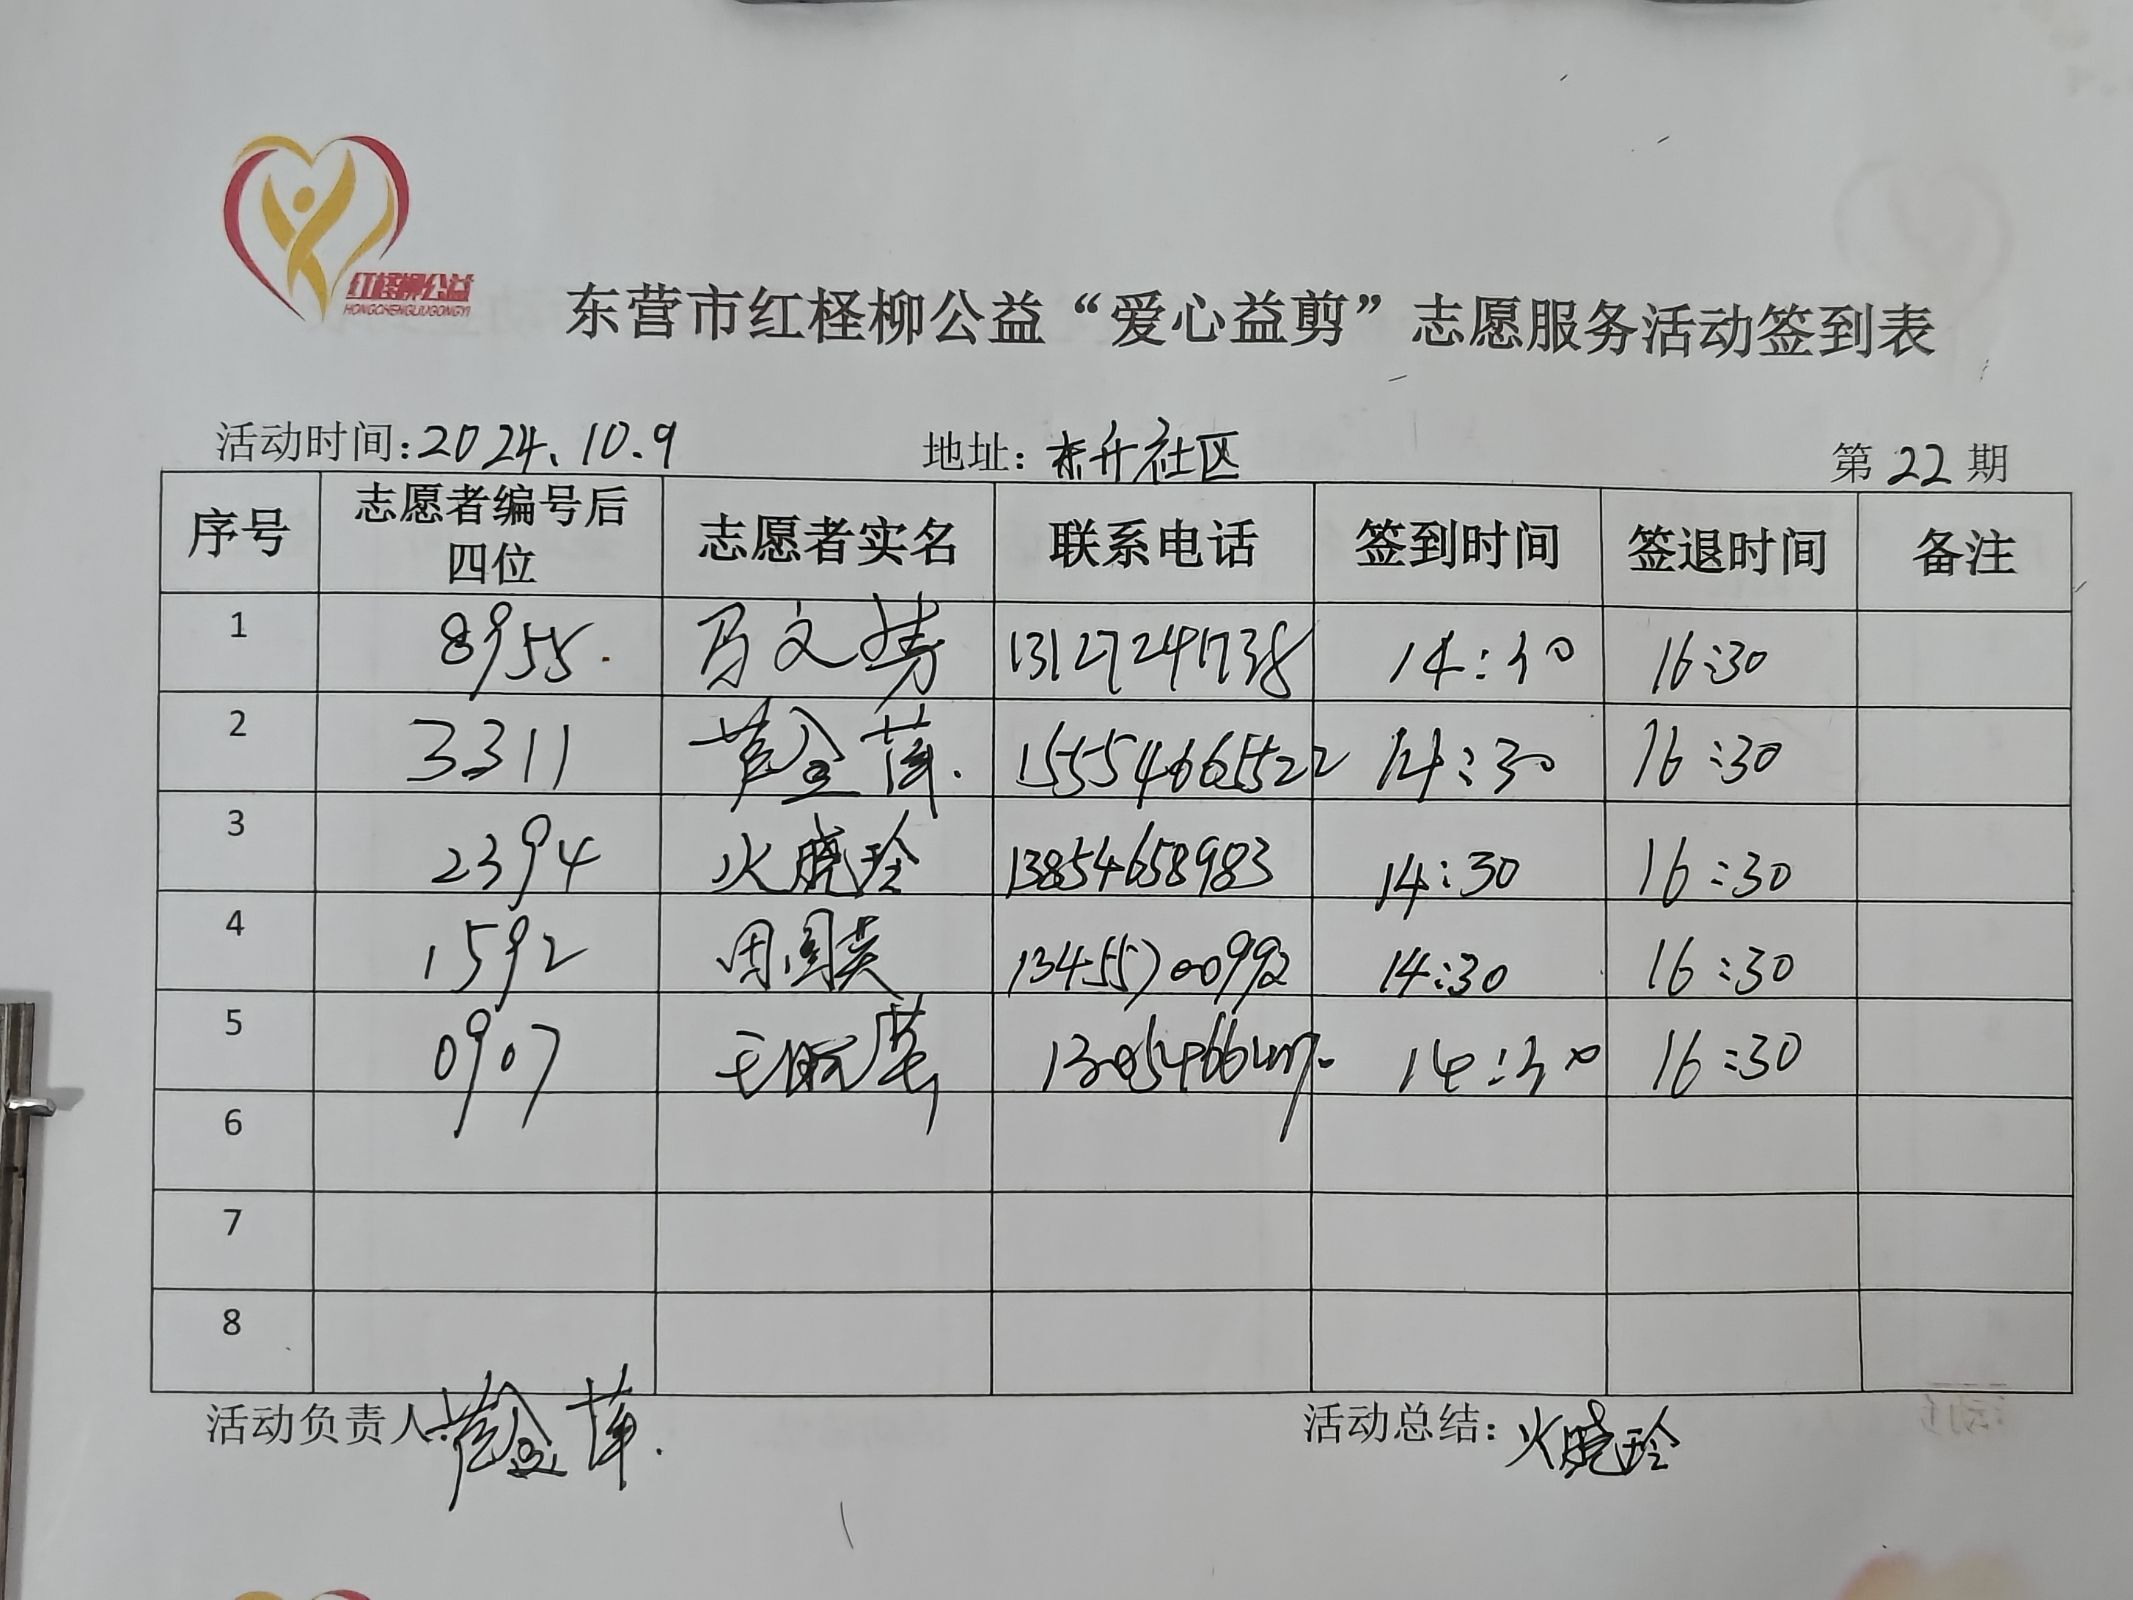 红柽柳公益
HONGCHENGLIUGONGYI
东营市红柽柳公益“爱心益剪”志愿服务活动签到表
活动时间:2024.10.9 地址:东升社区 第22期
序号 志愿者编号后四位 志愿者实名 联系电话 签到时间 签退时间 备注
1 8955 马文 13127241738 14:30 16:30
2 3311 金萍 15554665522 14:30 16:30
3 2394 火晓玲 13854658983 14:30 16:30
4 1592 周国英 13455700992 14:30 16:30
5 0907 14:30 16:30
6
7
8
活动负责人: 金萍 活动总结:火晓玲